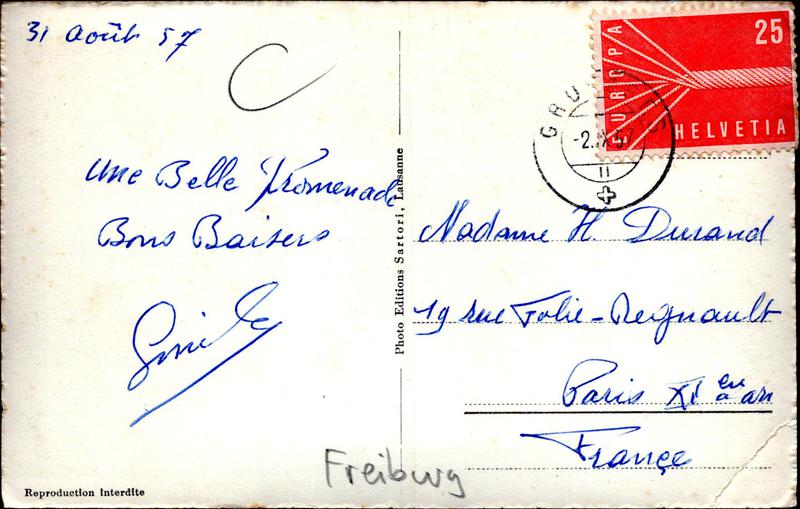 31 Août 57
Une Belle Promenade
Bons Baisers
EUROPA
25
HELVETIA
-2.IX.57
II
Madame H. Durand
19 rue Folie-Regnault
Paris XIe arr
France
Photo Editions Sartori, Lausanne
Freiburg
Reproduction interdite